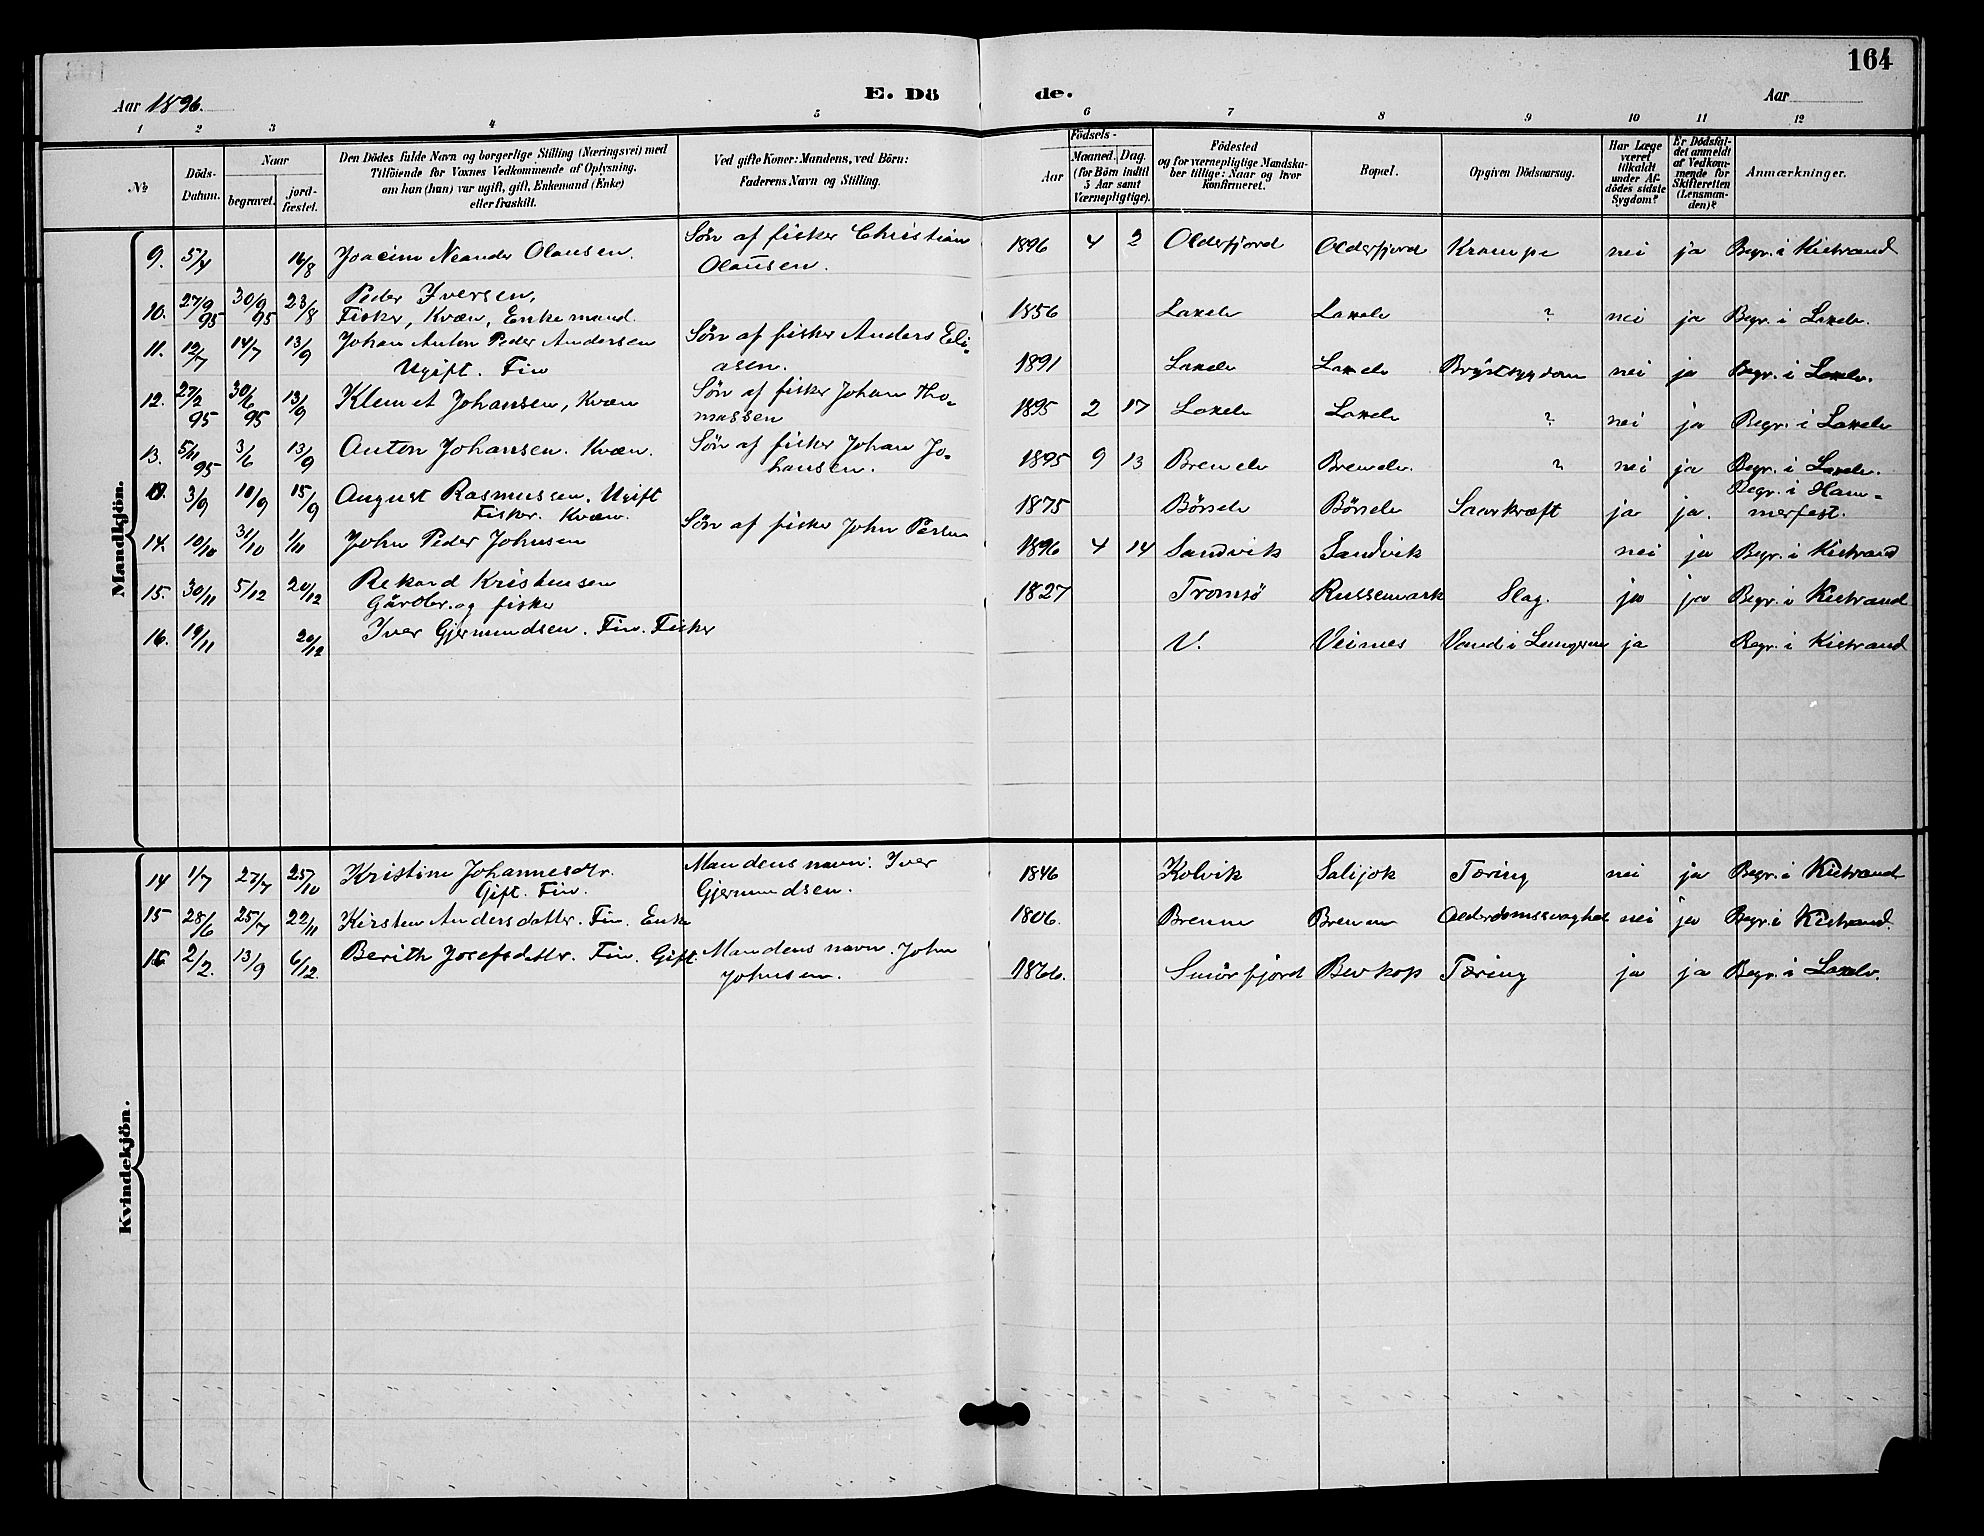 164
Aar 1896.
E. Dö de.
Aar
1 2 3 4 5 6 7 8 9 10 11 12
№
Döds-Datum.
Naar
begravet.
jord-fæstet.
Den Dödes fulde Navn og borgerlige Stilling (Næringsvei) med
Tilföiende for Voxnes Vedkommende af Oplysning,
om han (hun) var ugift, gift, Enkemand (Enke)
eller fraskilt.
Ved gifte Koner: Mandens, ved Börn:
Faderens Navn og Stilling.
Födsels-
Aar
Maaned. Dag.
(for Börn indtil
5 Aar samt
Værnepligtige).
Födested
og for værnepligtige Mandska-
ber tillige: Naar og hvor
konfirmeret.
Bopæl.
Opgiven Dödsaarsag.
Har Læge
været
tilkaldt
under Af-
dödes sidste
Sygdom?
Er Dödsfal-
det anmeldt
af Vedkom-
mende for
Skifteretten
(Lensman-
den)?
Anmærkninger.
Mandkjön.
9. 5/4 16/8 Joacim Neander Olausen. Søn af fisker Christian 1896 4 2 Olderfjord Olderfjord Krampe nei ja Begr. i Kistrand
Olausen.
10. 27/9 95 30/9 95 23/8 Peder Iversen, 1856 Laxelv Laxelv ? nei ja Begr. i Laxelv.
Fisker, Kvæn, Enkemand.
11. 12/7 14/7 13/9 Johan Anton Peder Andersen Søn af fisker Anders Eli- 1891 Laxelv Laxelv Brystsygdom nei ja Begr. i Laxelv.
Ugift. Fin asen.
12. 27/2 95 30/6 95 13/9 Klemet Johansen, Kvæn Søn af fisker Johan Tho- 1895 2 17 Laxelv Laxelv ? nei ja Begr. i Laxelv
massen
13. 5/11 95 3/6 13/9 Anton Johansen. Kvæn. Søn af fisker Johan Jo- 1895 9 13 Brenelv Brenelv. ? nei ja Begr. i Laxelv.
hansen.
3/9 10/9 15/9 August Rasmussen, Ugift 1875 Børselv Børselv ja ja. Begr. i Ham-
Fisker. Kvæn. merfest.
14. 10/10 31/10 1/11 John Peder Johnsen Søn af fisker John Persen 1896 4 14 Sandvik Sandvik nei ja Begr. i Kistrand
15. 30/11 5/12 20/12 Rekard Kristensen 1827 Tromsø Russemark Slag. ja ja Begr. i Kistrand
Gårdbr. og fisker
16. 19/11 20/12 Iver Gjermundsen. Fin. Fisker V. Veines Vand i Lungerne ja Begr. i Kistrand
Kvindekjön.
14 1/7 27/7 25/10 Kristine Johannesdtr. Mandens navn: Iver 1846 Kolvik Salijok Tæring nei ja Begr. i Kistrand
Gift. Fin. Gjermundsen.
15 28/6 25/7 22/11 Kirsten Andersdatter. Fin. Enke 1806. Brenna Brenna Alderdomssvaghed nei ja Begr. i Kistrand.
16 2/2. 13/9 6/12. Berith Josefsdatter. Fin. Gift. Mandens navn. John 1866. Smörfjord Bevkop Tæring ja ja Begr. i Laxelv.
Johnsen.